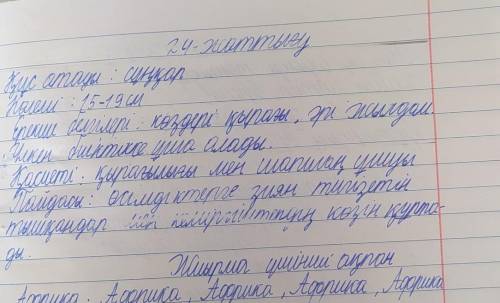 24-жаттығу
Құс атауы: сұңқар
Көлемі: 15-19 см
Ерекше белгілері: көздері қырағы, әрі жылдам.
Үлкен биіктікке ұша алады.
Қасиеті: қырағылығы мен шапшаң ұшуы
Пайдасы: өсімдіктерге зиян тигізетін
тышқандар мен кеміргіштердің көзін құрта-
ды.
Жиырма үшінші ақпан
Африка, Африка, Африка, Африка, Африка